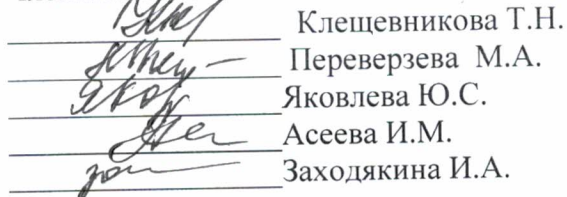 Клещевникова Т.Н.
Переверзева М.А.
Яковлева Ю.С.
Асеева И.М.
Заходякина И.А.